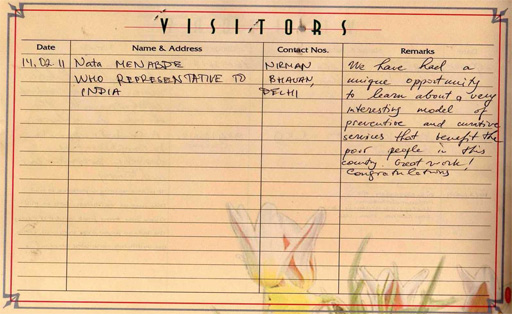 VISITORS
Date Name & Address Contact Nos. Remarks
14.02.11 Nata MENABDE NIRMAN We have had a
WHO REPRESENTATIVE TO BHAVAN, unique opportunity
INDIA DELHI to learn about a very
interesting model of
preventive and curative
services that benefit the
poor people in this
country. Great work!
Congratulations